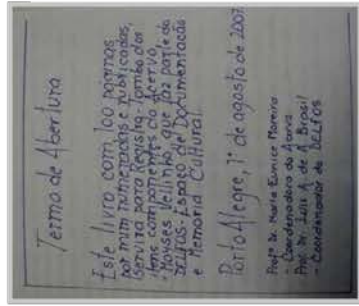 Termo de Abertura
Este livro com 100 páginas
por mim numeradas e rubricadas,
servirá para Registro Tombo dos
itens componentes do Acervo
"Moysés Vellinho" que faz parte do
DELFOS: Espaço de Documentação
e Memória Cultural.
Porto Alegre, 1º de agosto de 2007
Profª Dr. Maria Eunice Moreira
- Coordenadora do Acervo
Prof. Dr. Luis A. de A. Brasil
- Coordenador do DELFOS